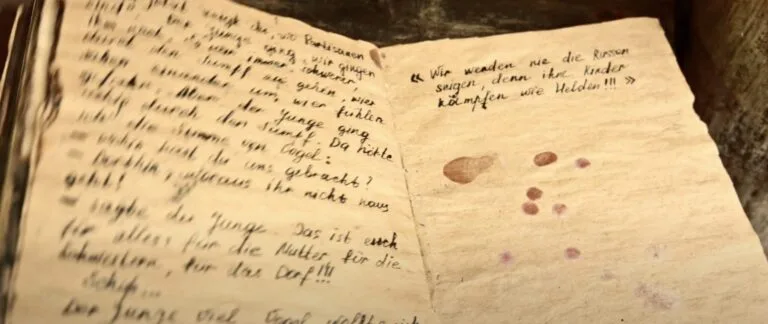 zeigt du, wo Partisanen
Der Junge ging, wir gingen
immer schwerer,
durch den Sumpf zu gehen, wir
sahen einander um, wir fühlen
Gefahr. Aber der Junge ging
durch den Sumpf. Da hörte
ich die Stimme von Gogel:
— wohin hast du uns gebracht?
— Dorthin, woraus ihr nicht naus
geht!
— sagte der Junge. Das ist euch
für alles: für die Mutter, für die
Schwestern, für das Dorf!!!
Der Junge viel Gogel
« Wir werden nie die Russen
seigen, denn ihre Kinder
kämpfen wie Helden!!! »